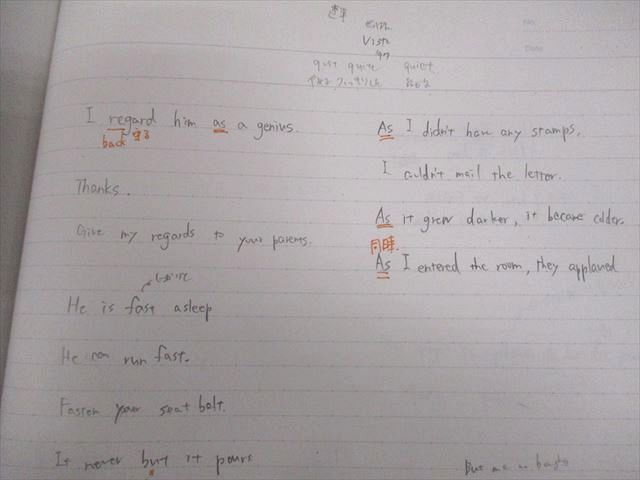 No.
Date
quit quite quiet
I regard him as a genius.
back 見る
Thanks.
Give my regards to your parents.
He is fast asleep
He can run fast.
Fasten your seat belt.
It never but it pours
As I didn't have any stamps,
I couldn't mail the letter.
As it grew darker, it became colder.
同時
As I entered the room, they applaued
But me no